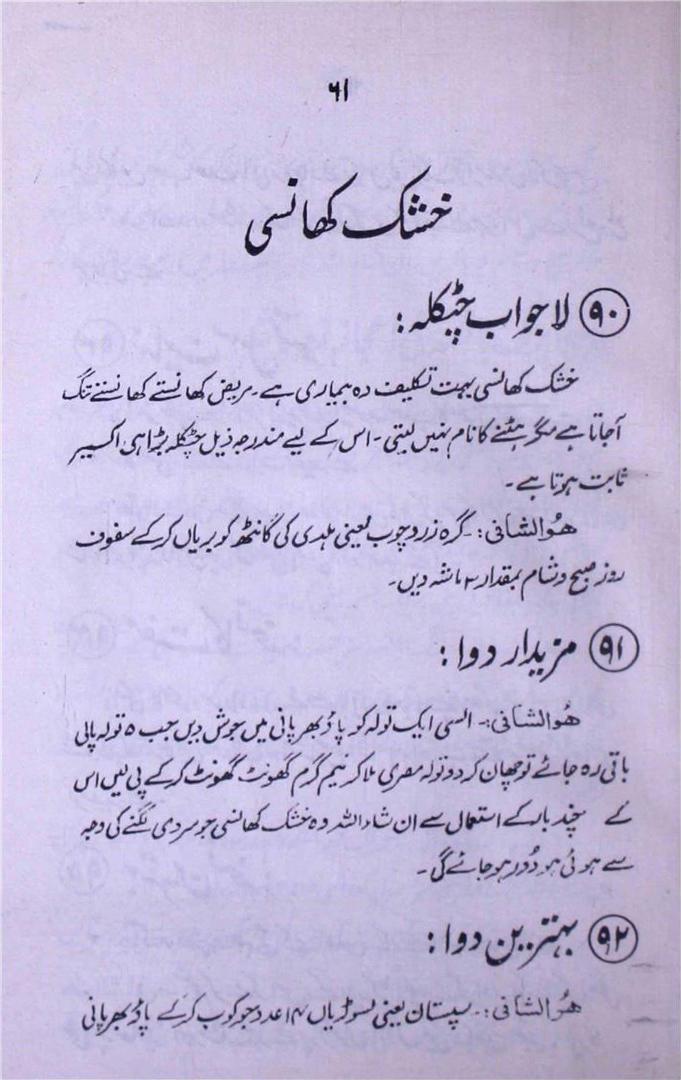 ۶۱
خشک کھانسی
۹۰ لاجواب چٹکلہ:
خشک کھانسی بہت تکلیف دہ بیماری ہے۔ مریض کھانستے کھانستے تنگ
آجاتا ہے مگر ہٹنے کا نام نہیں لیتی۔ اس کے لیے مندرجہ ذیل چٹکلہ بڑا ہی اکسیر
ثابت ہوتا ہے۔
ھُوالشافی:۔ گرہ زرد چوب یعنی ہلدی کی گانٹھ کو بریاں کرکے سفوف
روز صبح و شام بمقدار ۲ ماشہ دیں۔
۹۱ مزیدار دوا:
ھُوالشافی:۔ السی ایک تولہ کو پاؤ بھر پانی میں جوش دیں جب ۵ تولہ پانی
باقی رہ جائے تو چھان کر دو تولہ مصری ملا کر نیم گرم گھونٹ گھونٹ کرکے پی لیں اس
کے چند بار کے استعمال سے ان شاء اللہ وہ خشک کھانسی جو سردی لگنے کی وجہ
سے ہوئی ہو دُور ہوجائے گی۔
۹۲ بہترین دوا:
ھُوالشافی:۔ سپستان یعنی لسوڑیاں ۱۴ عدد جوکوب کرکے پاؤ بھر پانی